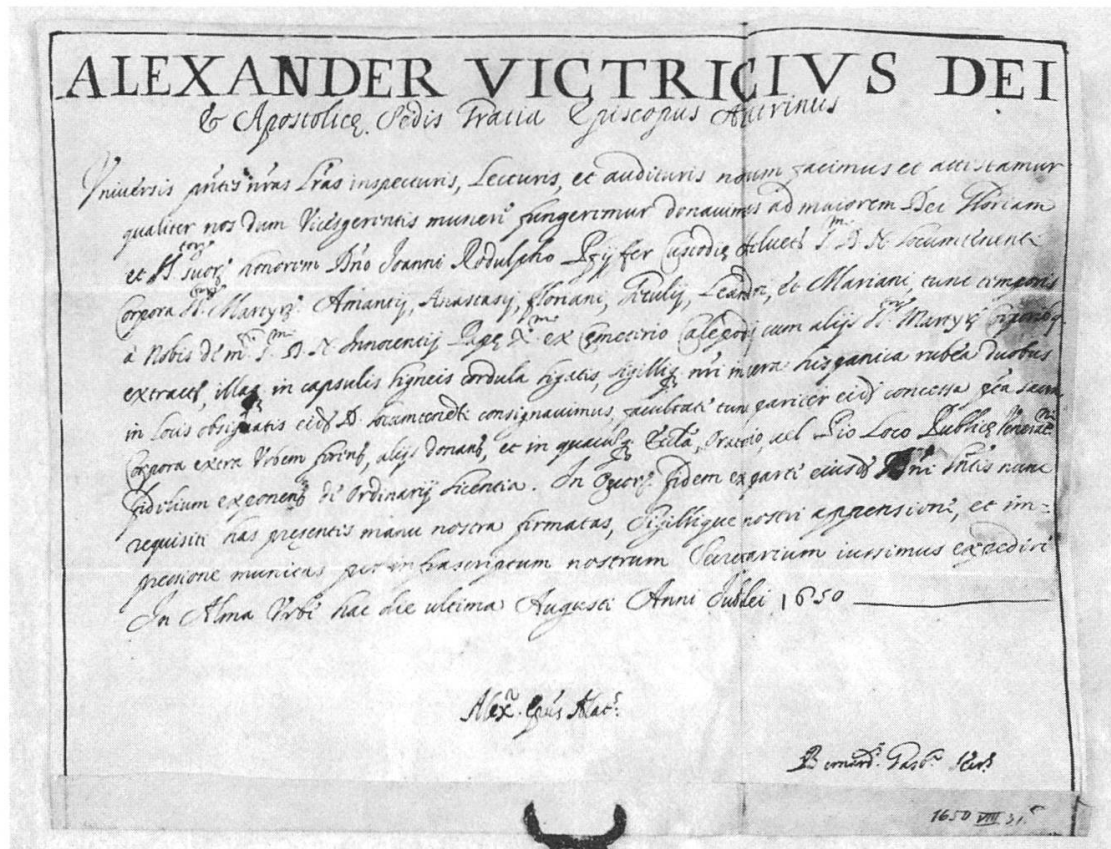 ALEXANDER VICTRICIVS DEI
& Apostolicę Sedis Gratia Episcopus Alatrinus
Vniversis pñtes nr̃as Lr̃as inspecturis, Lecturis, et audituris notum facimus et attestamur
qualiter nos dum Vicesgerentis muneri fungeremur donauimus ad maiorem Dei Gloriam
et honorem Dño Joanni Rodulpho Pfyffer Custodię Heluet. D. N. Locumtenenti
Corpora Martyrũ Amantij, Anastasij, Floriani, Leandri, et Mariani, tunc temporis
à Nobis de D. N. Innocentij Papę X. ex Cęmeterio cum alijs Martyrũ
extracta, illaq. in capsulis ligneis cordula ligatis, nr̃i in cera hispanica rubea duobus
in locis obsignatis eidẽ D. Locumtenenti consignauimus, facultate tunc pariter eidẽ concessa pr̃ta sacra
Corpora extra Vrbem alijs donandi, et in quacumq. Oratorio, uel Pio Loco Publicę
fidelium exponendi de Ordinarij licentia. In quorũ fidem ex parte eiusdẽ nunc
requisiti has pręsentes manu nostra firmatas, Sigillique nostri appensione, et im=
pressione munitas per infrascriptum nostrum Secretarium iussimus expediri
In Alma Vrbe hac die ultima Augusti Anni Jubilei 1650
Alex.r Epũs Alat.s
Bernard.
1650 VIII 31.